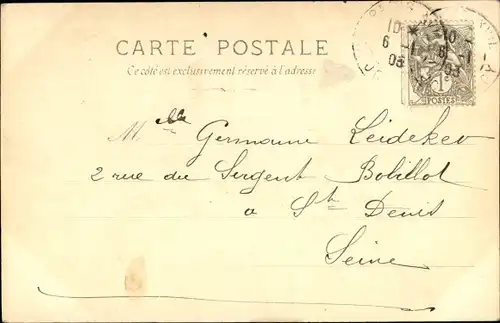 CARTE POSTALE
Ce côté est exclusivement réservé à l'adresse
10
6 1
03
10
6 1
03
1c
POSTES
Mlle Germaine Leideker
2 rue du Sergent Bobillot
a St Denis
Seine